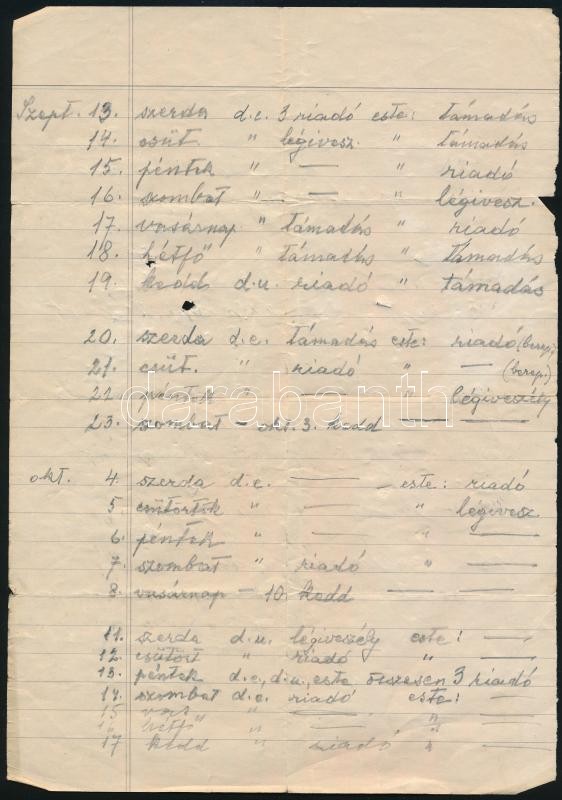 Szept. 13. szerda d.e. 3 riadó este: támadás
14. csüt. " légivesz. " támadás
15. péntek " — " riadó
16. szombat " — " légivesz.
17. vasárnap " támadás " riadó
18. hétfő " támadás " támadás
19. kedd d.u. riadó " támadás
20. szerda d.e. támadás este: riadó (berep.)
21. csüt. " riadó " — (berep.)
22. péntek " — " légiveszély
23. szombat – okt. 3. kedd — —
okt. 4. szerda d.e. — este: riadó
5. csütörtök " — " légivesz.
6. péntek " — " —
7. szombat " riadó " —
8. vasárnap – 10. kedd — —
11. szerda d.u. légiveszély este: —
12. csütört " riadó " —
13. péntek d.e., d.u., este összesen 3 riadó
14. szombat d.e. riadó este: —
15 vas. " — " —
16 hétfő " — " —
17 kedd " riadó " —
darabanth